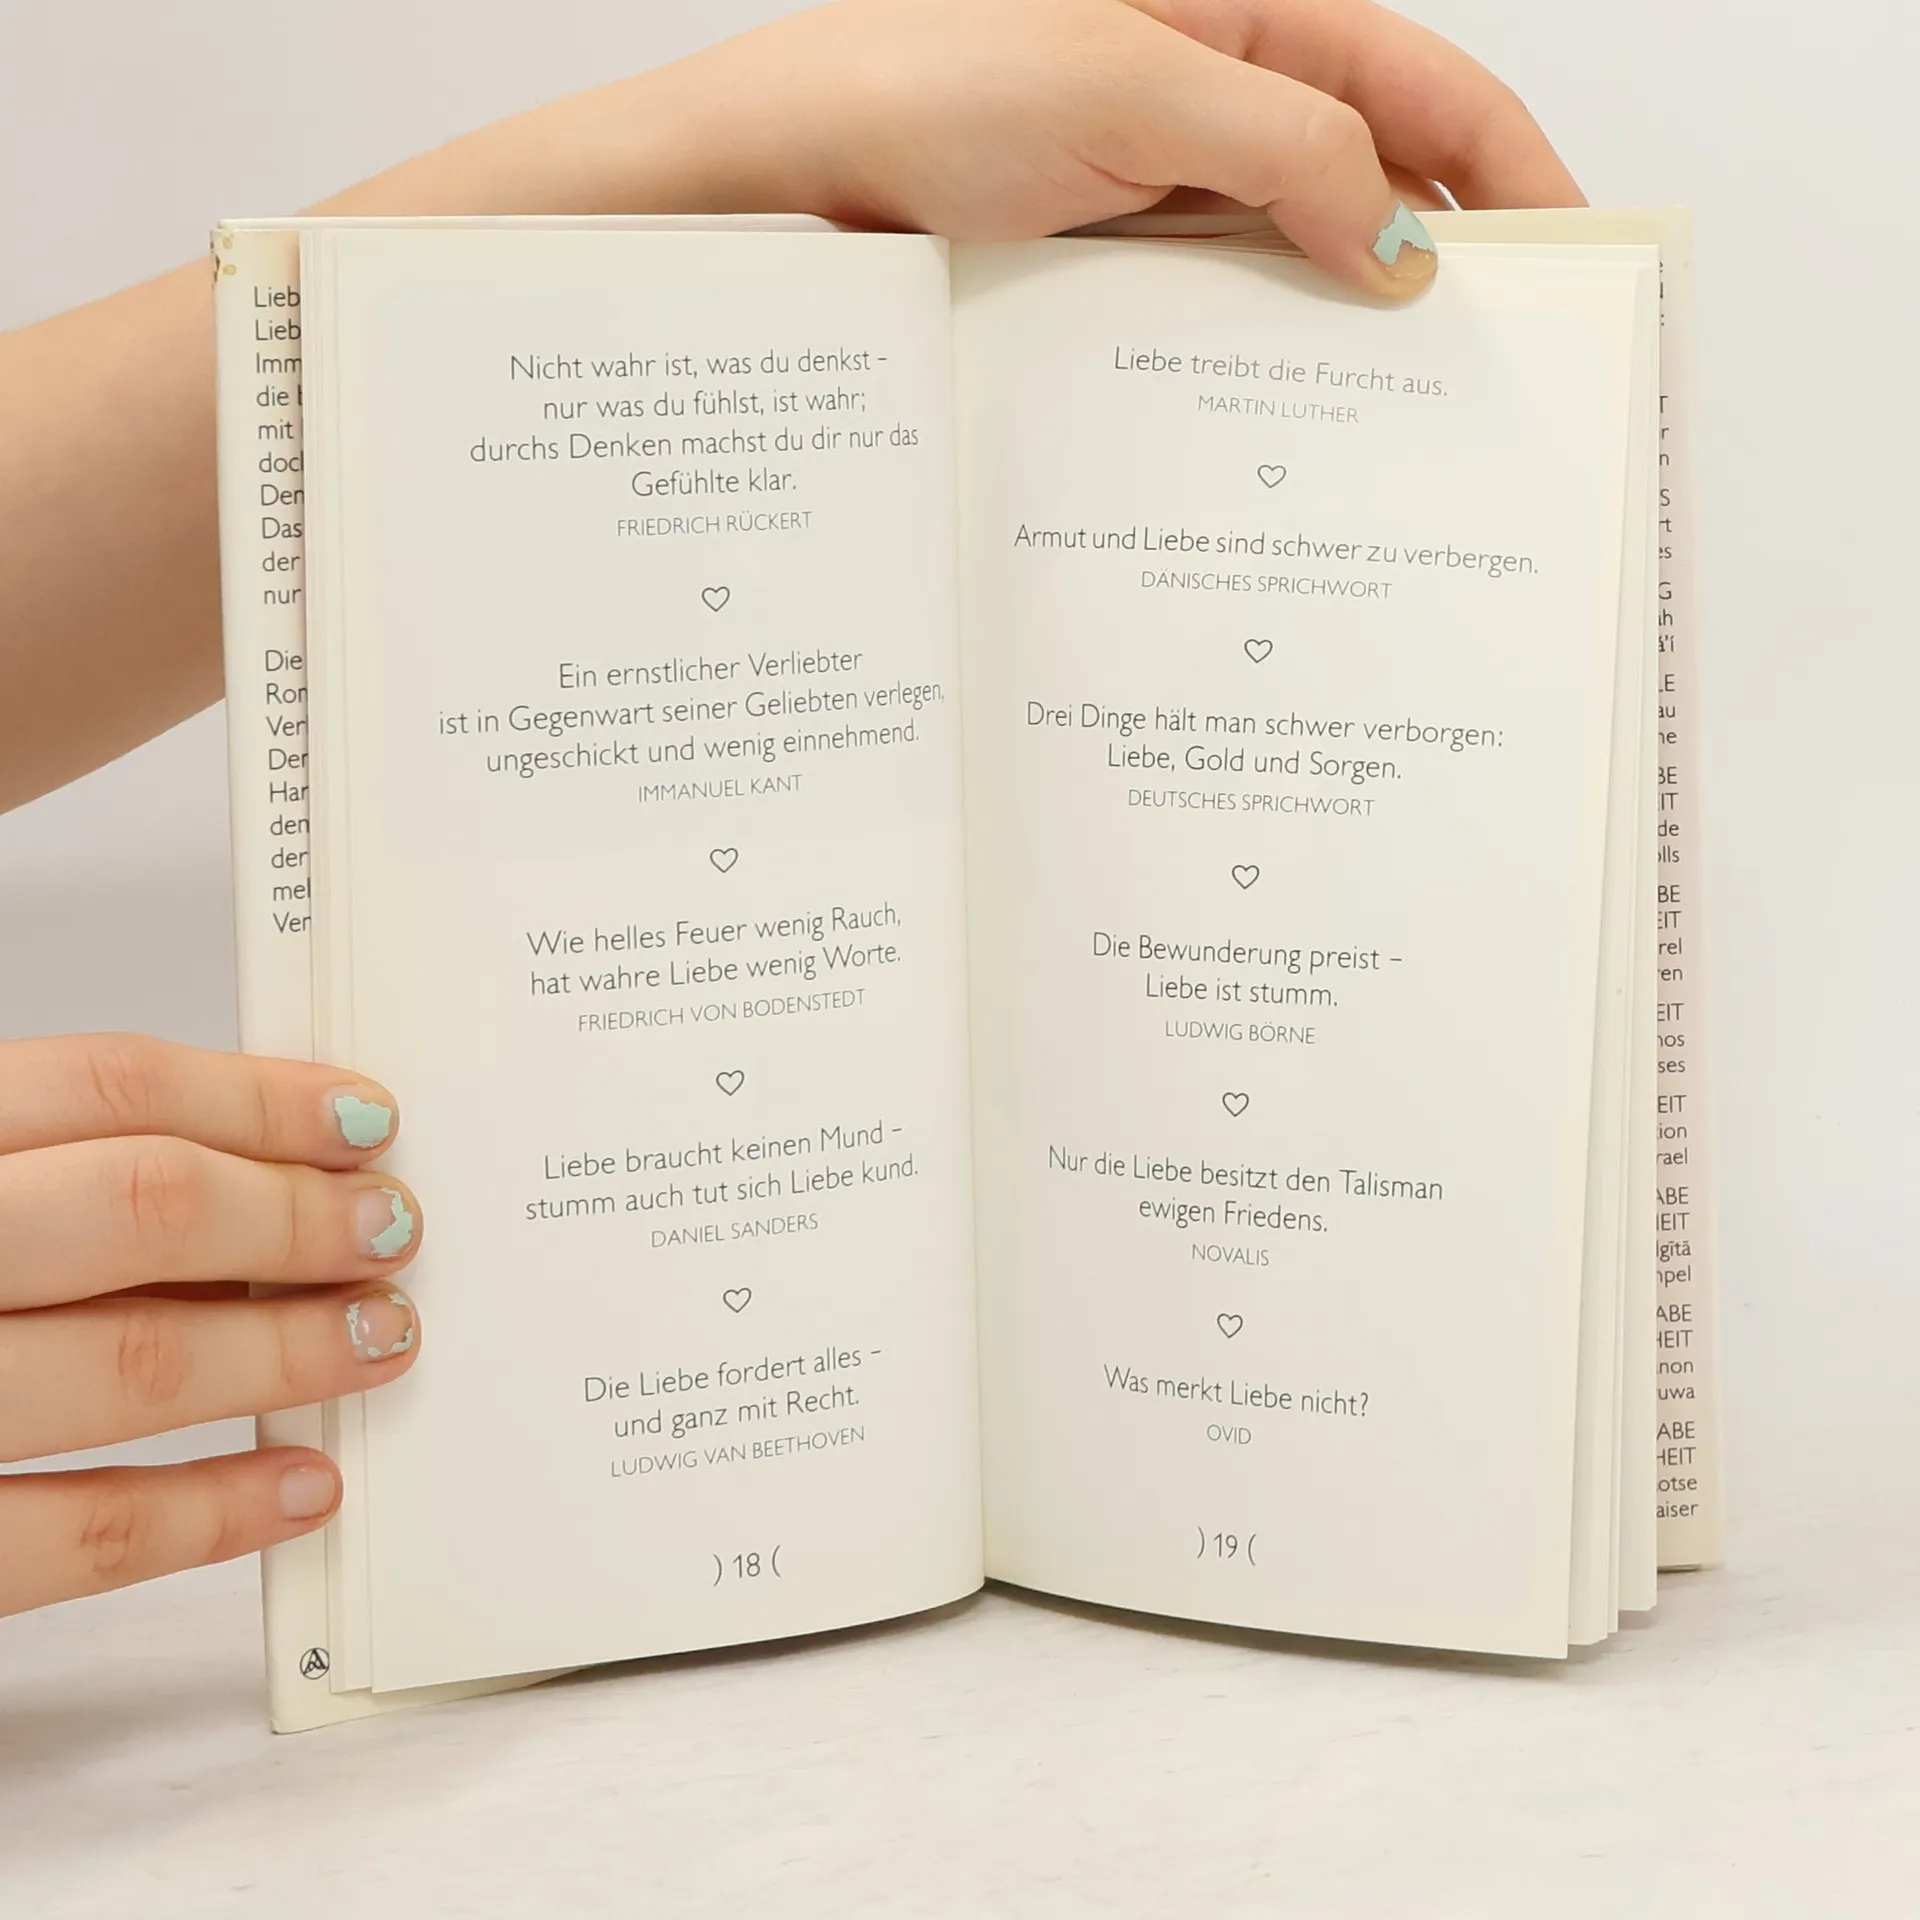 Lieb
Lieb
Imm
die
mit
doch
Den
Das
der
nur
Die
Rom
Ver
Der
Har
den
der
mel
Ver
Nicht wahr ist, was du denkst –
nur was du fühlst, ist wahr;
durchs Denken machst du dir nur das
Gefühlte klar.
FRIEDRICH RÜCKERT
Ein ernstlicher Verliebter
ist in Gegenwart seiner Geliebten verlegen,
ungeschickt und wenig einnehmend.
IMMANUEL KANT
Wie helles Feuer wenig Rauch,
hat wahre Liebe wenig Worte.
FRIEDRICH VON BODENSTEDT
Liebe braucht keinen Mund –
stumm auch tut sich Liebe kund.
DANIEL SANDERS
Die Liebe fordert alles –
und ganz mit Recht.
LUDWIG VAN BEETHOVEN
) 18 (
Liebe treibt die Furcht aus.
MARTIN LUTHER
Armut und Liebe sind schwer zu verbergen.
DÄNISCHES SPRICHWORT
Drei Dinge hält man schwer verborgen:
Liebe, Gold und Sorgen.
DEUTSCHES SPRICHWORT
Die Bewunderung preist –
Liebe ist stumm.
LUDWIG BÖRNE
Nur die Liebe besitzt den Talisman
ewigen Friedens.
NOVALIS
Was merkt Liebe nicht?
OVID
) 19 (
T
r
n
S
rt
es
G
ah
á'í
LE
au
ne
BE
IT
de
olls
BE
EIT
rel
ren
EIT
nos
ses
EIT
tion
rael
ABE
HEIT
dgītā
mpel
ABE
HEIT
non
uwa
ABE
HEIT
otse
aiser